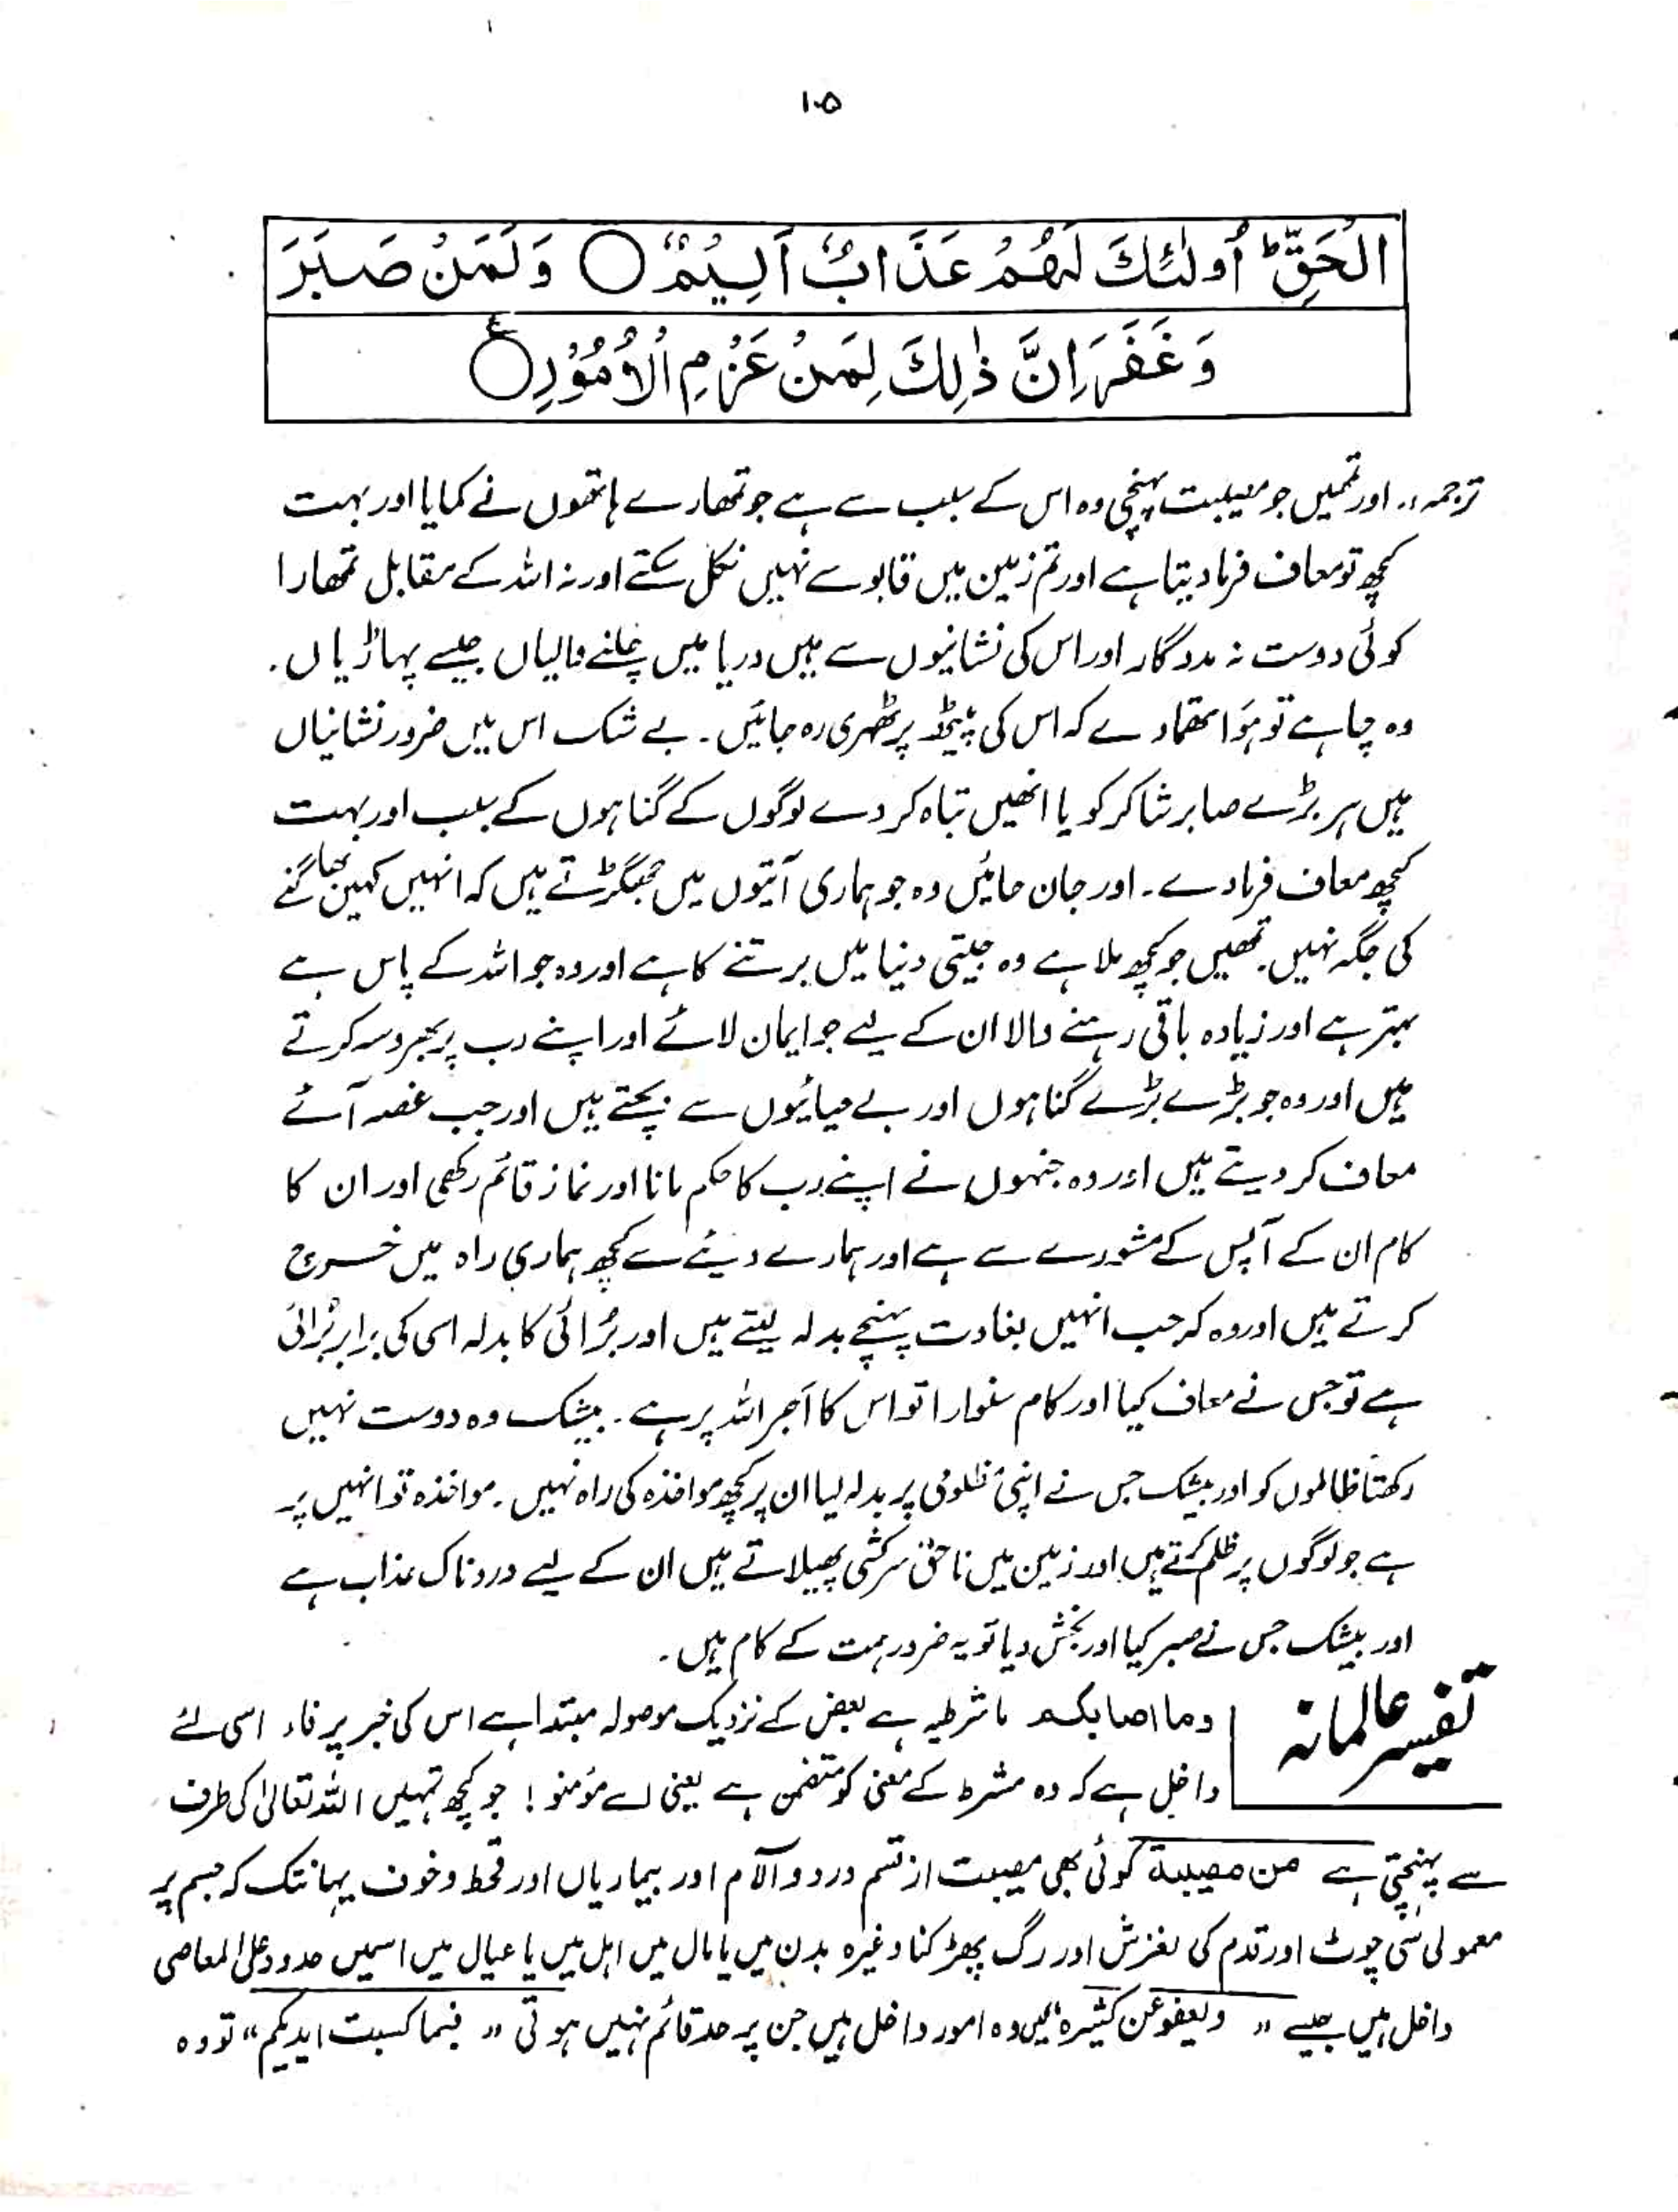 ۱۰۵
الْحَقِّ ؕ اُولٰٓئِكَ لَهُمْ عَذَابٌ اَلِيْمٌ ○ وَلَمَنْ صَبَرَ
وَغَفَرَ اِنَّ ذٰلِكَ لِمَنْ عَزْمِ الْاُمُوْرِ ○ ع
ترجمہ: اور تمھیں جو مصیبت پہنچی وہ اس کے سبب سے ہے جو تمھارے ہاتھوں نے کمایا اور بہت
کچھ تو معاف فرما دیتا ہے اور تم زمین میں قابو سے نہیں نکل سکتے اور نہ اللہ کے مقابل تمھارا
کوئی دوست نہ مددگار اور اس کی نشانیوں سے ہیں دریا میں چلنے والیاں جیسے پہاڑیاں۔
وہ چاہے تو ہوا تھما دے کہ اس کی پیٹھ پر ٹھہری رہ جائیں۔ بے شک اس میں ضرور نشانیاں
ہیں ہر بڑے صابر شاکر کو یا انھیں تباہ کر دے لوگوں کے گناہوں کے سبب اور بہت
کچھ معاف فرما دے۔ اور جان جائیں وہ جو ہماری آیتوں میں جھگڑتے ہیں کہ انہیں کہیں بھاگنے
کی جگہ نہیں۔ تمھیں جو کچھ ملا ہے وہ جیتی دنیا میں برتنے کا ہے اور وہ جو اللہ کے پاس ہے
بہتر ہے اور زیادہ باقی رہنے والا ان کے لیے جو ایمان لائے اور اپنے رب پر بھروسہ کرتے
ہیں اور وہ جو بڑے بڑے گناہوں اور بے حیائیوں سے بچتے ہیں اور جب غصہ آئے
معاف کر دیتے ہیں اور وہ جنہوں نے اپنے رب کا حکم مانا اور نماز قائم رکھی اور ان کا
کام ان کے آپس کے مشورے سے ہے اور ہمارے دیئے سے کچھ ہماری راہ میں خرچ
کرتے ہیں اور وہ کہ جب انہیں بغاوت پہنچے بدلہ لیتے ہیں اور برُائی کا بدلہ اسی کی برابر برُائی
ہے تو جس نے معاف کیا اور کام سنوارا تو اس کا اَجر اللہ پر ہے۔ بیشک وہ دوست نہیں
رکھتا ظالموں کو اور بیشک جس نے اپنی مظلومی پر بدلہ لیا ان پر کچھ مواخذہ کی راہ نہیں۔ مواخذہ تو انہیں پر
ہے جو لوگوں پر ظلم کرتے ہیں اور زمین میں ناحق سرکشی پھیلاتے ہیں ان کے لیے دردناک عذاب ہے
اور بیشک جس نے صبر کیا اور بخش دیا تو یہ ضرور ہمت کے کام ہیں۔
تفسیر عالمانہ
وما اصابکم ما شرطیہ ہے بعض کے نزدیک موصولہ مبتدا ہے اس کی خبر پر فاء اسی لئے
داخل ہے کہ وہ شرط کے معنی کو متضمن ہے یعنی اے مؤمنو! جو کچھ تمہیں اللہ تعالیٰ کی طرف
سے پہنچتی ہے من مصیبة کوئی بھی مصیبت از قسم درد و آلام اور بیماریاں اور قحط و خوف یہانتک کہ جسم پر
معمولی سی چوٹ اور قدم کی لغزش اور رگ پھڑکنا وغیرہ بدن میں یا مال میں اہل میں یا عیال میں اسمیں حدود علی المعاصی
داخل ہیں جیسے " ویعفو عن کثیرہ" میں وہ امور داخل ہیں جن پر حد قائم نہیں ہوتی " فبما کسبت ایدیکم" تو وہ